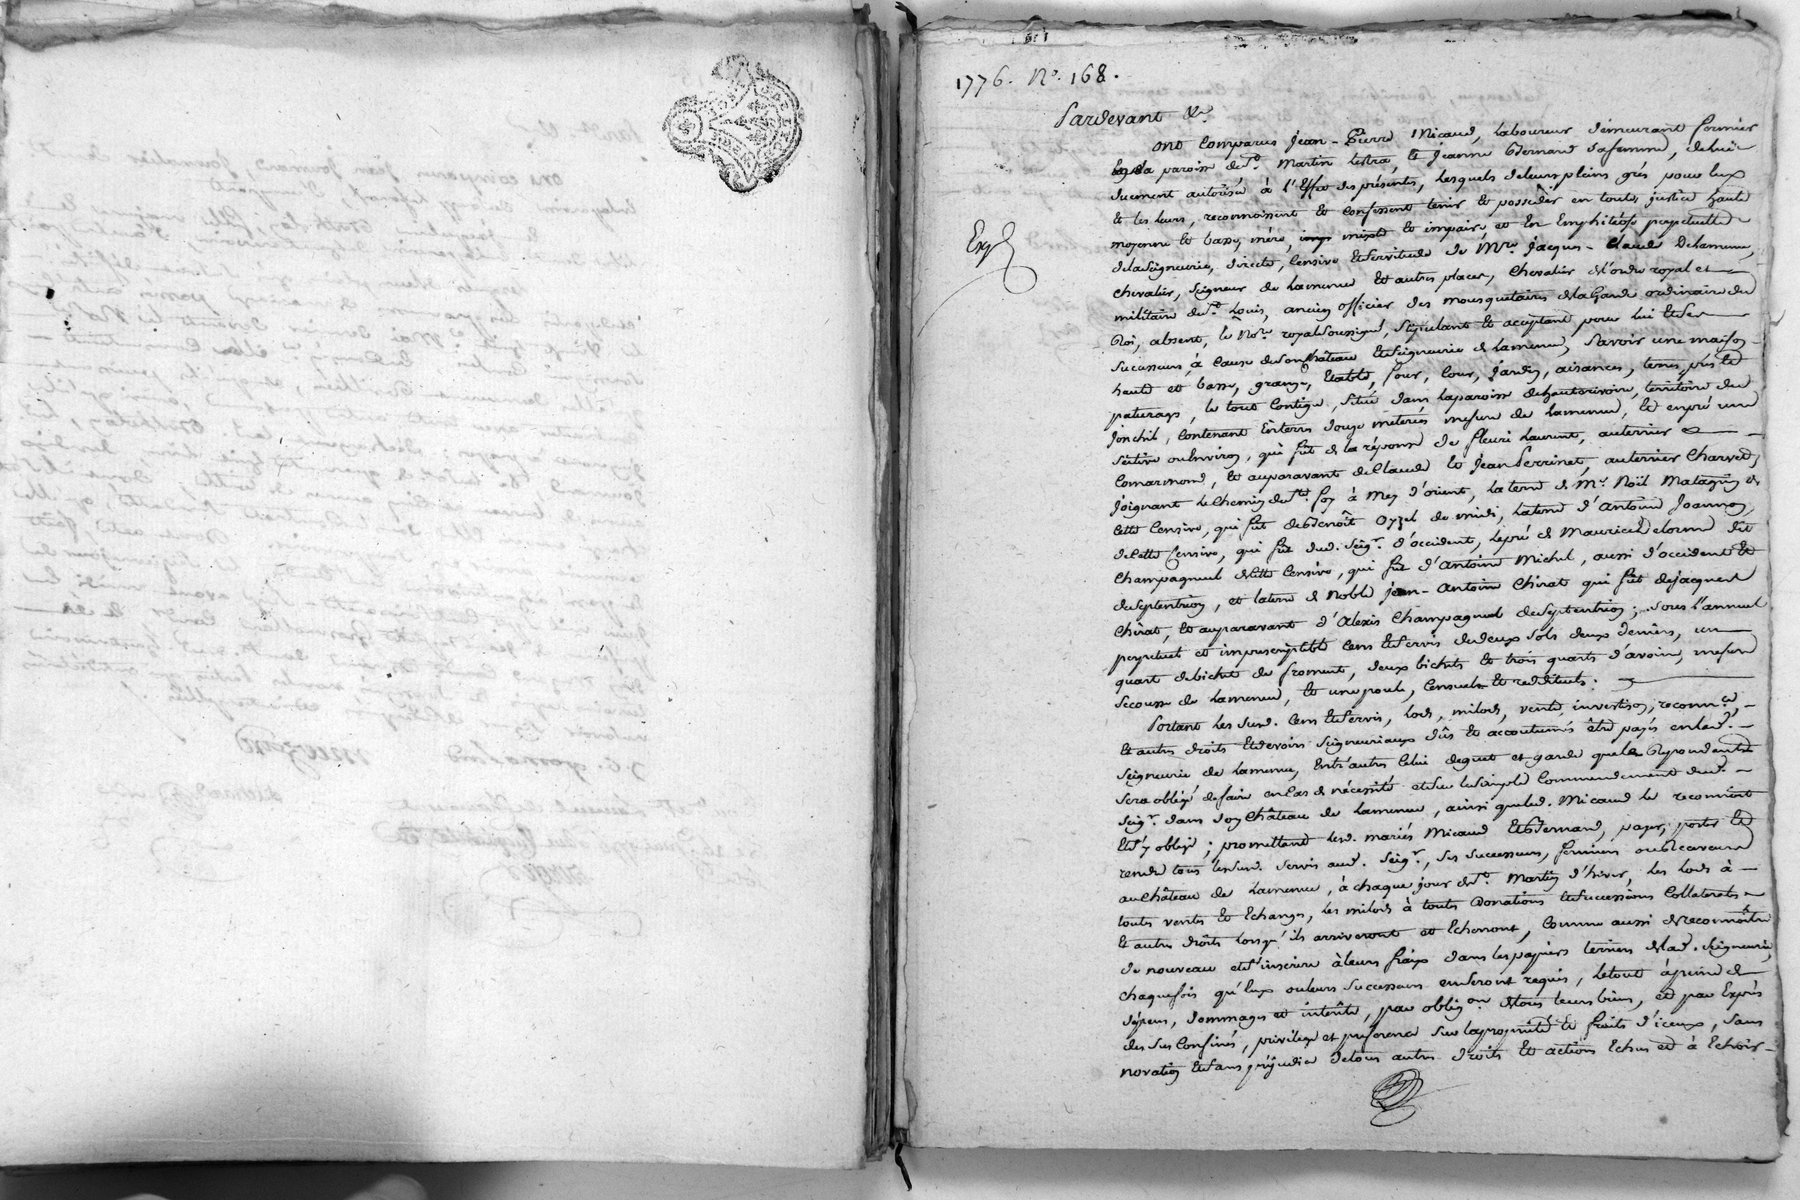 1776. N°. 168.
Pardevant &c.
Ont Comparus Jean-Pierre Micaud, Laboureur demeurant fermier
en la paroisse de St. Martin Lestra, et Jeanne Bernard sa femme, de lui
duement autorisée à l'Effet des présentes, Lesquels de leurs pleins grés pour Eux
Et les leurs, reconnoissent Et Confessent tenir Et posséder en toute justice haute
moyenne Et basse, mére, mixte Et impaire, et En Emphitéose perpetuelle
de la Seigneurie, directe, Censive Et Servitude de Mre. Jacques-Claude Delamenue,
Chevalier, Seigneur de Lamenue Et autres places, Chevalier de l'ordre royal et
militaire de St. Louis, ancien officier des mousquetaires de la Garde ordinaire du
Roi, absent, le Nre. royal Soussigné, Stipulant Et acceptant pour lui Et Ses
Successeurs, à Cause de Son Château Et Seigneurie de Lamenue, Savoir une maison
haute et basse, grange, Etable, four, Cour, Jardin, aisances, terres, prés Et
paturages, le tout Contigu, Situé dans la paroisse de hauterivoire, territoire du
Jonchil, Contenant En terre douze méterées mesure de Lamenue, Et en pré une
Séitive ou Environ, qui fût de la réponse de fleuri Laurent, au terrier
Comarmond, Et auparavant de Claude Et Jean Perrinet, au terrier Charvet,
Joignant Le Chemin de Ste. foy à Mey d'orient, La terre de Mr. Noël Matagrin de
Cette Censive, qui fût de Benoît Ozzel de midi, La terre d'Antoine Joannon,
de Cette Censive, qui fût dud. Seigr. d'occident, Le pré de Maurice Delorme dit
Champagneul de Cette Censive, qui fût d'Antoine Michel, aussi d'occident Et
de Septentrion, et La terre de Noble Jean-Antoine Chirat qui fût de Jacques
Chirat, Et auparavant d'Alexis Champagneul de Septentrion; Sous L'annuel
perpétuel et imprescriptible Cens Et Servis de deux Sols deux deniers, un
quart de bichet de froment, deux bichets Et trois quarts d'avoine, mesure
Secousse de Lamenue, Et une poule, Censuels Et redditeuls.
Portant Les Susd. Cens Et Servis, Lods, milods, vente, investison, reconnce.,
Et autres droits Et devoirs Seigneuriaux dûs Et accoutumés être payés en lad.
Seigneurie de Lamenue, Entr'autres Celui de guet et garde que le Répondant
Sera obligé de faire en Cas de nécessité et Sur Le Simple Commendement dud.
Seigr. dans Son Château de Lamenue, ainsi que led. Micaud le reconnoit
Et S'y oblige; promettant Lesd. mariés Micaud Et Bernard, payer, porter Et
rendre tous les Susd. Servis aud. Seigr., Ses Successeurs, fermiers ou Receveurs
au Château de Lamenue, à chaque jour de St. Martin d'hiver, Les Lods à
toutes ventes Et Echanges, Les milods à toutes Donations Et Successions Collaterales
Et autres droits lorsqu'ils arriveront et Echerront, Comme aussi de reconnoître
de nouveau et S'inscrire à leurs fraix dans les papiers terriers de lad. Seigneurie,
chaque fois qu'Eux ou leurs Successeurs en Seront requis, Le tout à peine de
dépens, dommages et intérêts, par obligon. de tous leurs biens, et par Exprès
des Sus Confinés, privilège et préference Sur la propriété Et fruits d'iceux, Sans
novation Et Sans préjudice de tous autres droits Et actions Echus et à Echoir